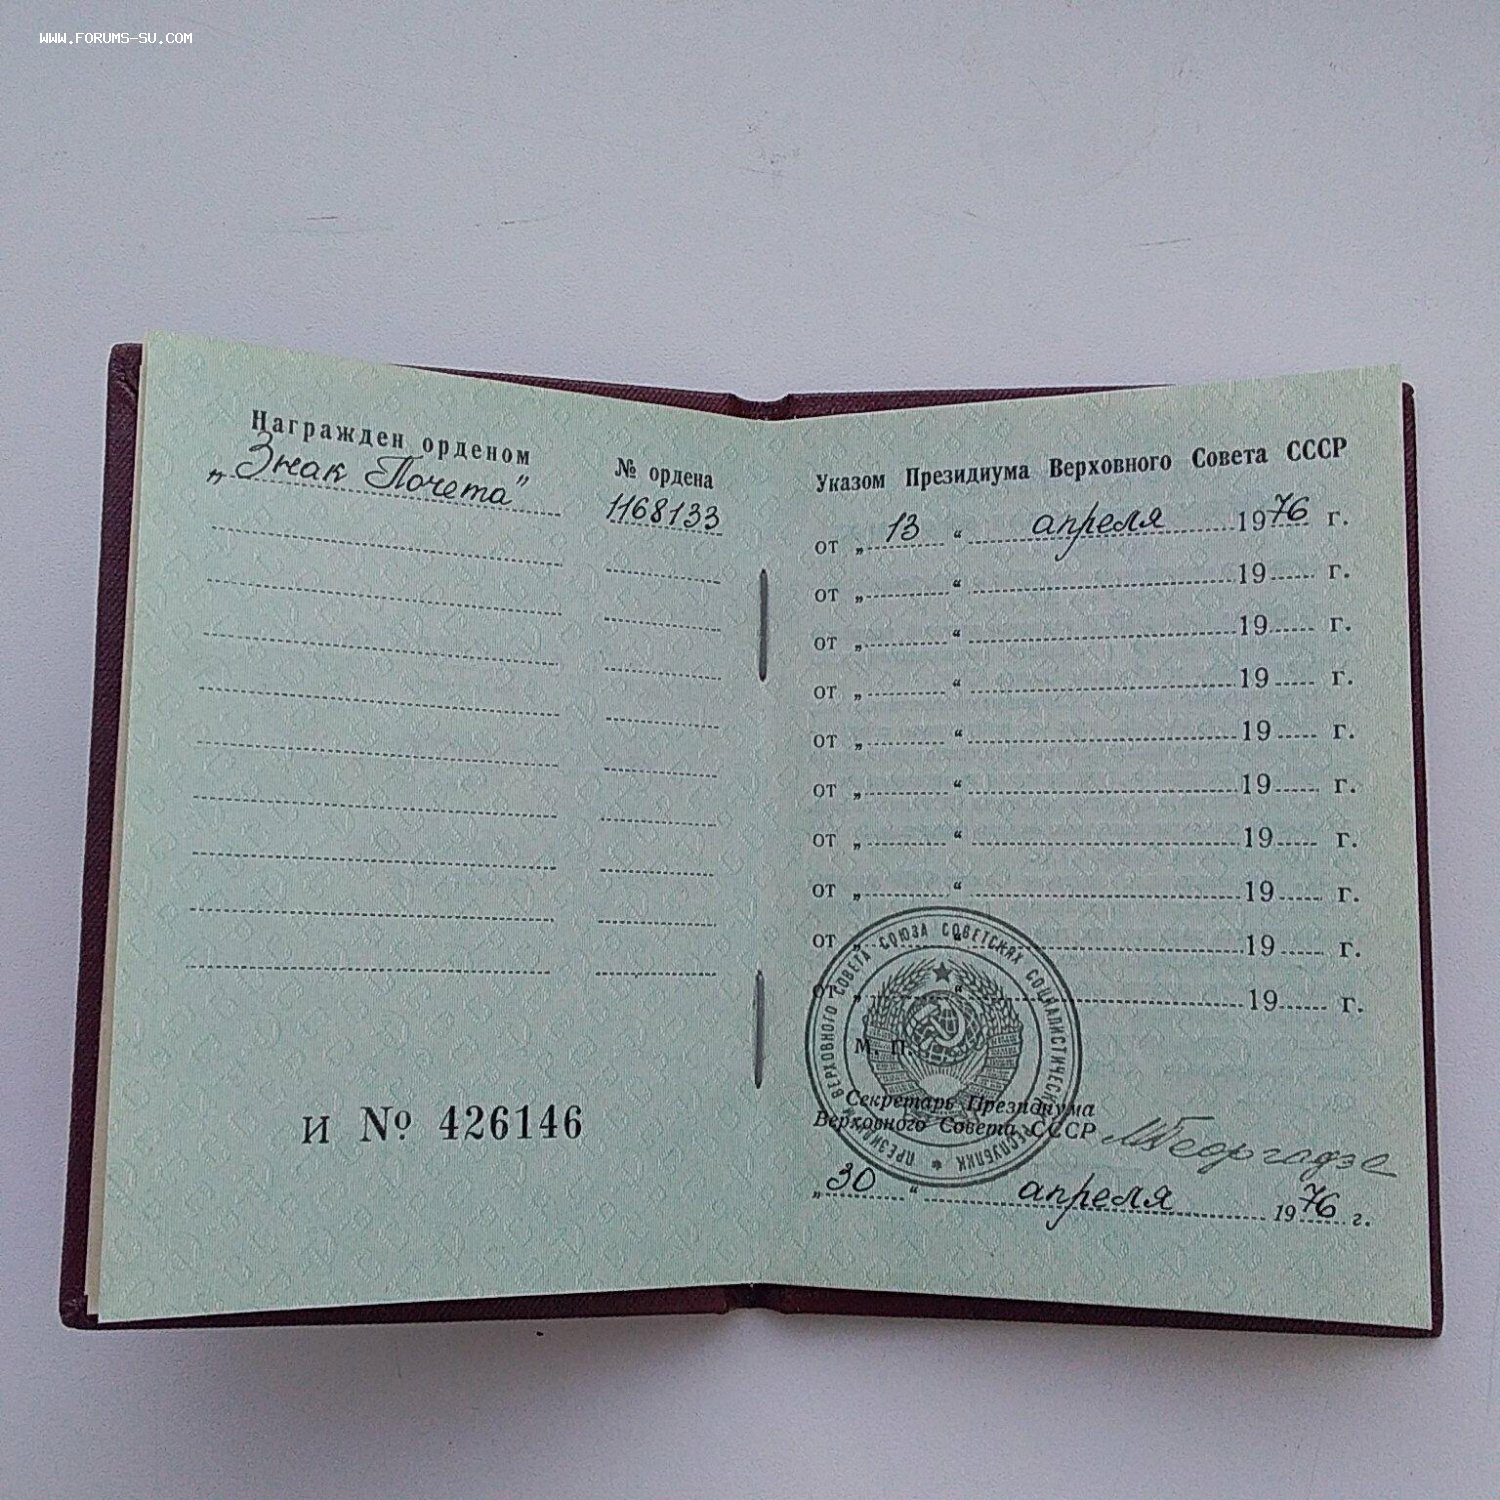 WWW.FORUMS-SU.COM
Награжден орденом
„Знак Почета"
№ ордена
1168133
И № 426146
Указом Президиума Верховного Совета СССР
от „ 13 “ апреля 1976 г.
от „ “ 19 г.
от „ “ 19 г.
от „ “ 19 г.
от „ “ 19 г.
от „ “ 19 г.
от „ “ 19 г.
от „ “ 19 г.
от „ “ 19 г.
от „ “ 19 г.
М. П.
ПРЕЗИДИУМ ВЕРХОВНОГО СОВЕТА СОЮЗА СОВЕТСКИХ СОЦИАЛИСТИЧЕСКИХ РЕСПУБЛИК
Секретарь Президиума
Верховного Совета СССР
МГеоргадзе
„ 30 “ апреля 1976 г.